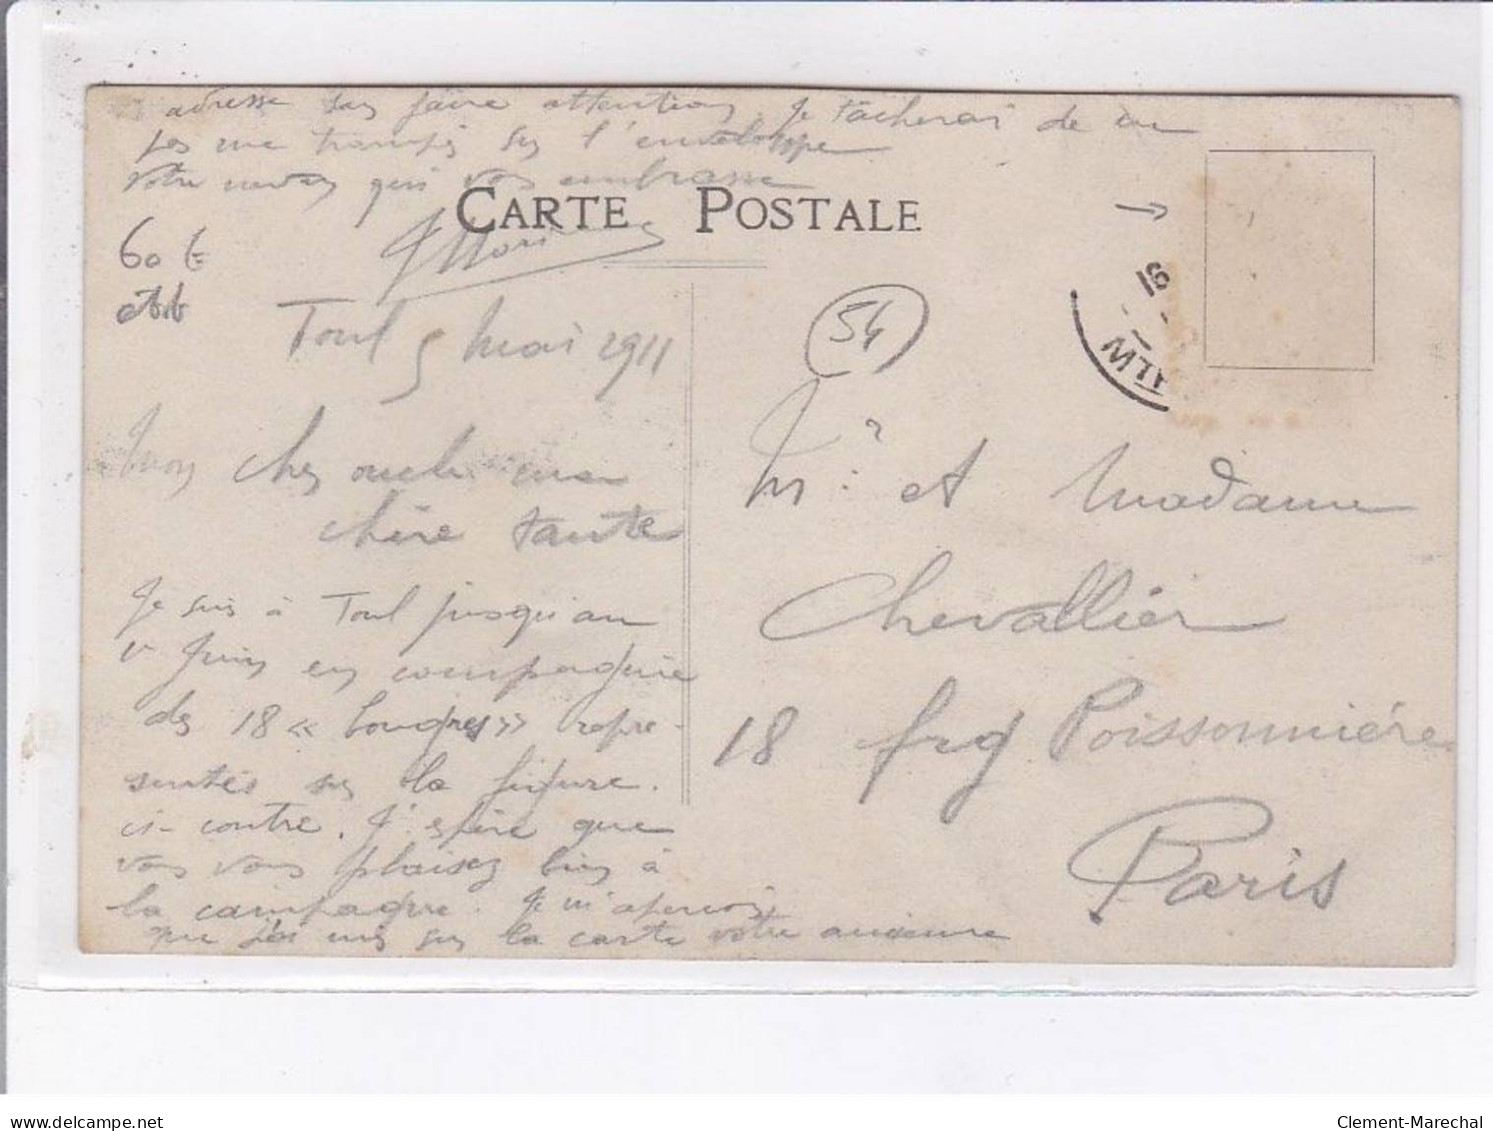 adresse sans faire attention, je tacherai de ne
pas me tromper sur l'enveloppe
Votre neveu qui vous embrasse
CARTE POSTALE
60 E
Toul 5 mai 1911
54
16
Mon cher oncle ma
chère tante
Je suis à Toul jusqu'au
1er Juin en compagnie
des 18 « bougres » repré-
sentés sur la figure
ci-contre. J'espère que
vous vous plaisez bien à
la campagne. Je m'aperçois
que j'ai mis sur la carte votre ancienne
Mr et Madame
Chevallier
18 fbg Poissonnière
Paris
delcampe.net
Clement-Marechal